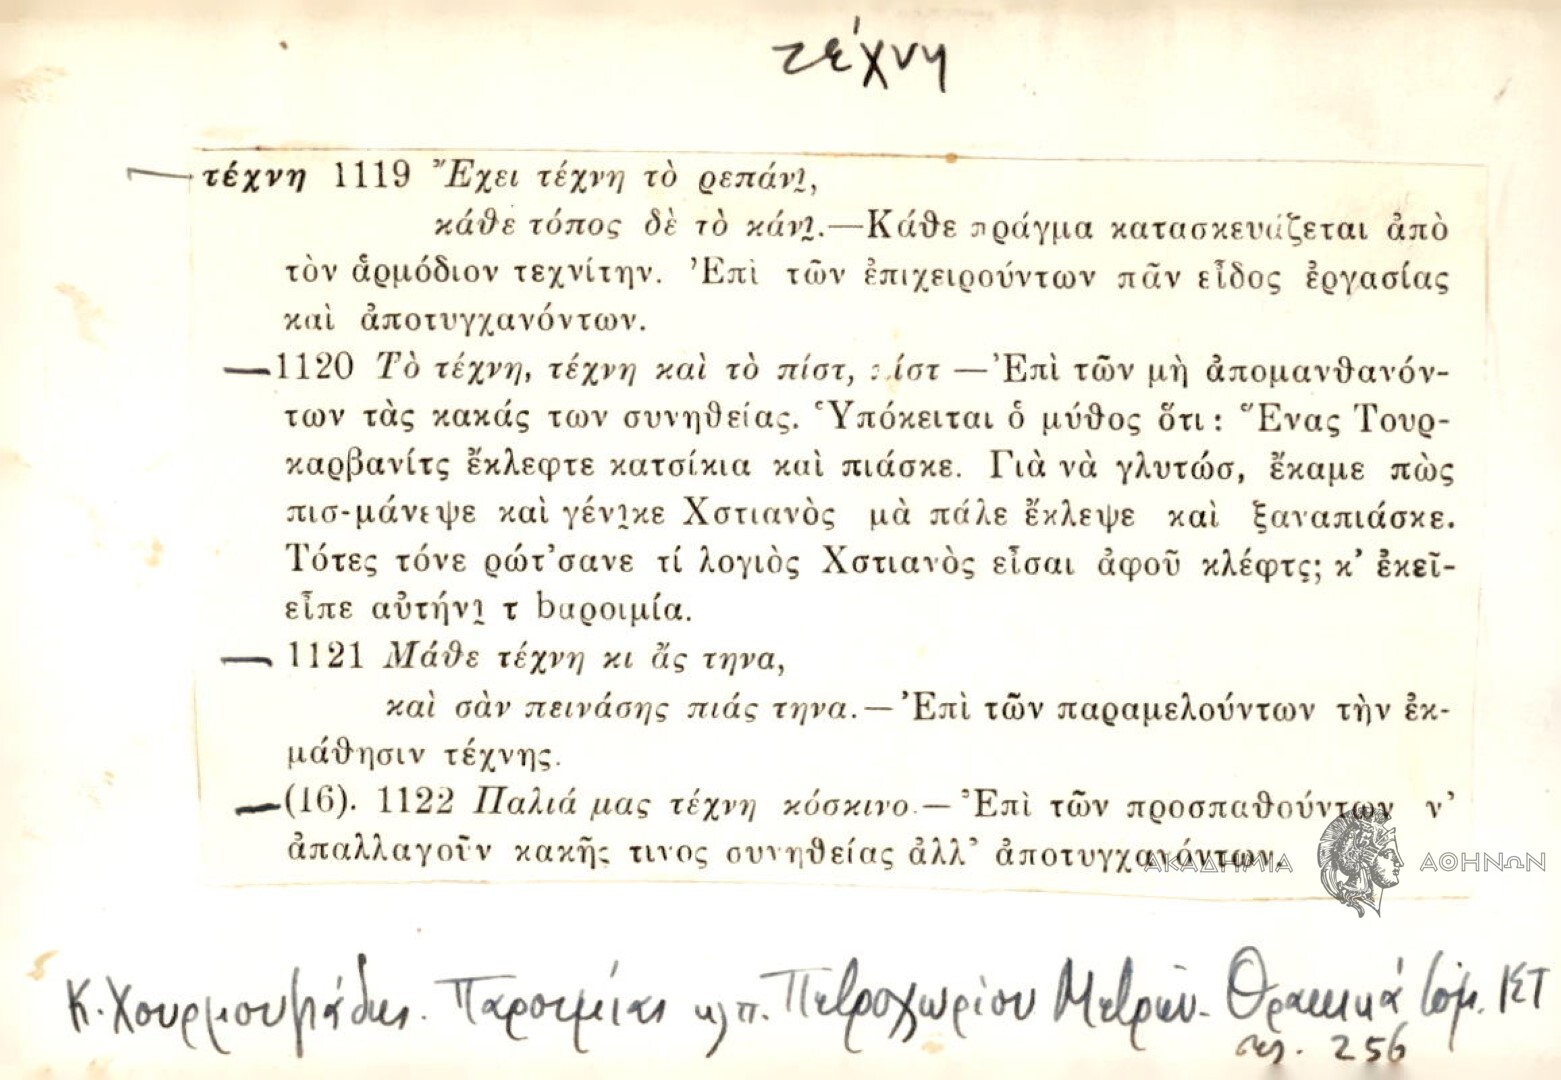 τέχνη
τέχνη 1119 Ἔχει τέχνη τὸ ρεπάνι̯,
κάθε τόπος δὲ τὸ κάνι̯.—Κάθε πράγμα κατασκευάζεται ἀπὸ
τὸν ἁρμόδιον τεχνίτην. Ἐπὶ τῶν ἐπιχειρούντων πᾶν εἶδος ἐργασίας
καὶ ἀποτυγχανόντων.
1120 Τὸ τέχνη, τέχνη καὶ τὸ πίστ, πίστ — Ἐπὶ τῶν μὴ ἀπομανθανόν-
των τὰς κακάς των συνηθείας. Ὑπόκειται ὁ μύθος ὅτι: Ἕνας Τουρ-
καρβανίτς ἔκλεφτε κατσίκια καὶ πιάσκε. Γιὰ νὰ γλυτώσ, ἔκαμε πὼς
πισ-μάνεψε καὶ γένι̯κε Χστιανὸς μὰ πάλε ἔκλεψε καὶ ξαναπιάσκε.
Τότες τόνε ρώτ'σανε τί λογιὸς Χστιανὸς εἶσαι ἀφοῦ κλέφτς; κ' ἐκεῖ-
εἶπε αὐτήνι̯ τ bαροιμία.
1121 Μάθε τέχνη κι ἄς τηνα,
καὶ σὰν πεινάσης πιάς τηνα.— Ἐπὶ τῶν παραμελούντων τὴν ἐκ-
μάθησιν τέχνης.
(16). 1122 Παλιά μας τέχνη κόσκινο.— Ἐπὶ τῶν προσπαθούντων ν'
ἀπαλλαγοῦν κακῆς τινος συνηθείας ἀλλ' ἀποτυγχανόντων.
ΑΚΑΔΗΜΙΑ ΑΘΗΝΩΝ
Κ. Χουρμουζιάδης. Παροιμίαι κλπ. Πετροχωρίου Μετρῶν. Θρακικά τόμ. ΚΣΤ
σελ. 256